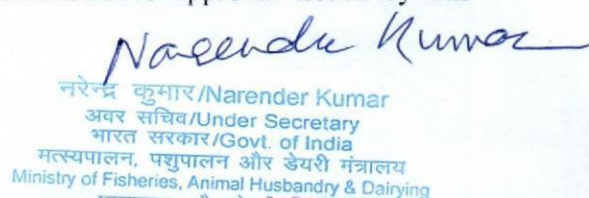 Narender Kumar
नरेन्द्र कुमार/Narender Kumar
अवर सचिव/Under Secretary
भारत सरकार/Govt. of India
मत्स्यपालन, पशुपालन और डेयरी मंत्रालय
Ministry of Fisheries, Animal Husbandry & Dairying